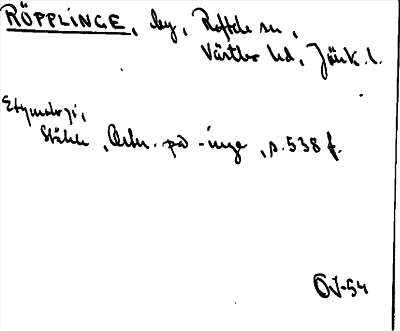 RÖPPLINGE, by, Reftele sn,
Västbo hd, Jönk. l.
Etymologi,
Ståhle, Ortn. på -inge, s. 538 f.
OJ-54